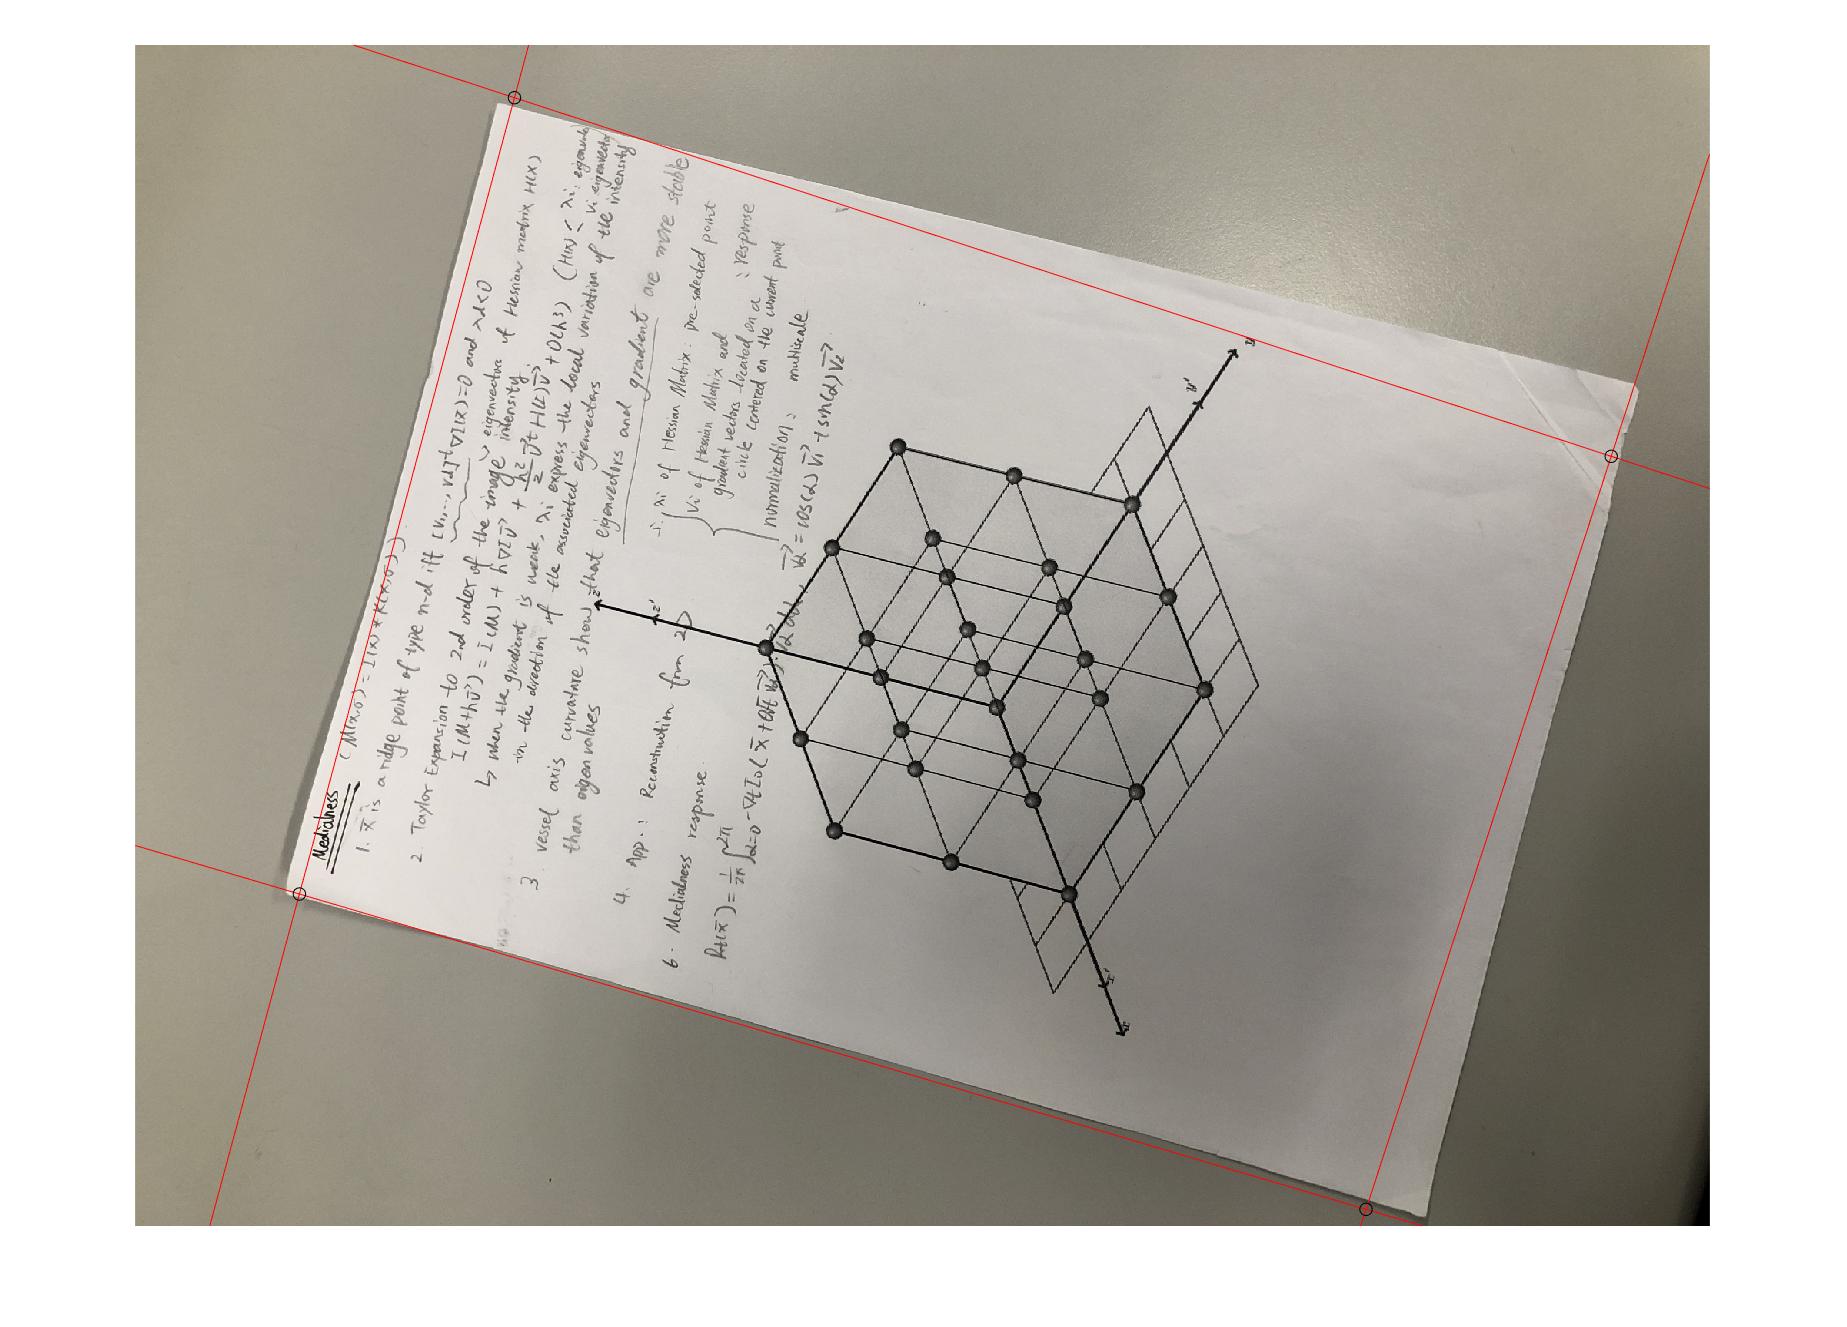 Medialness ( M(x,σ) = I(x) * K(x,σ) )
1. x is a ridge point of type n-d iff [v1,..., vd]t ∇I(x)=0 and λd<0
↘ eigenvectors of Hessian matrix H(x)
2. Taylor Expansion to 2nd order of the image intensity:
I(M+hv) = I(M) + h∇I v + h²/2 vt H(I) v + O(h³) ( H(x) < λi: eigenvalue
vi: eigenvector
↳ when the gradient is weak, λi express the local variation of the intensity
in the direction of the associated eigenvectors
3. vessel axis curvature show that eigenvectors and gradient are more stable
than eigen values
4. App: Reconstruction from 2D
∴ λi of Hessian Matrix: pre-selected point
Vi of Hessian Matrix and
gradient vectors located on a : response
circle centered on the current point
normalization: multiscale
6. Medialness response.
Rt(x) = 1/2π ∫α=0 2π - ∇t Iσ( x + σt vα). vα dα, vα = cos(α) v1 + sin(α) v2
z
z'
y
y'
x'
x